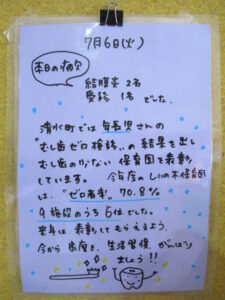 7月6日(火)
本日の病欠
結膜炎 2名
受診 1名 でした。
清水町では 年長児さんの
"むし歯ゼロ検診"の 結果を出し
むし歯の少ない 保育園を表彰
しています。 今年度の しいの木保育園
は、"ゼロ者率" 70.8%
9施設のうち 6位でした。
来年は 表彰してもらえるよう、
今から 歯磨き、生活習慣 がんばり
ましょう!!